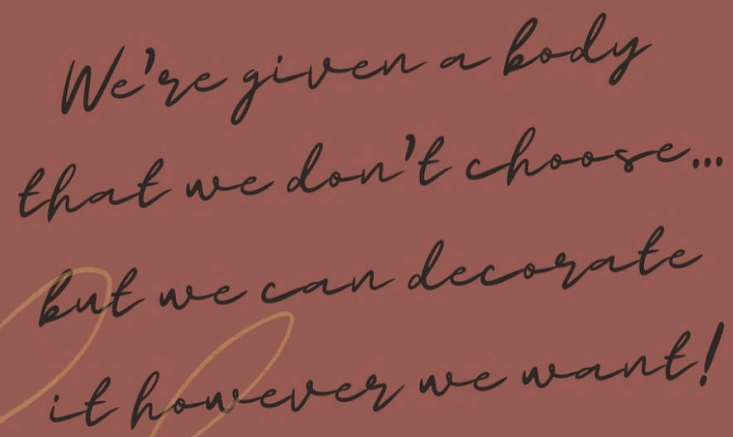 We're given a body
that we don't choose...
but we can decorate
it however we want!